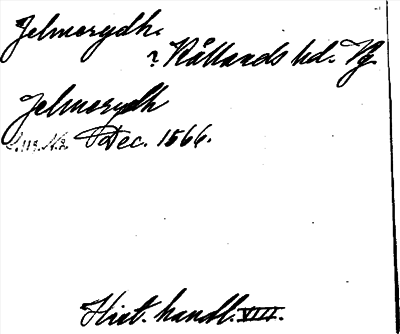 Jelmerydh.
? Kållands hd. Vg.
Jelmerydh
Dec. 1566.
Hist. handl. VIII.